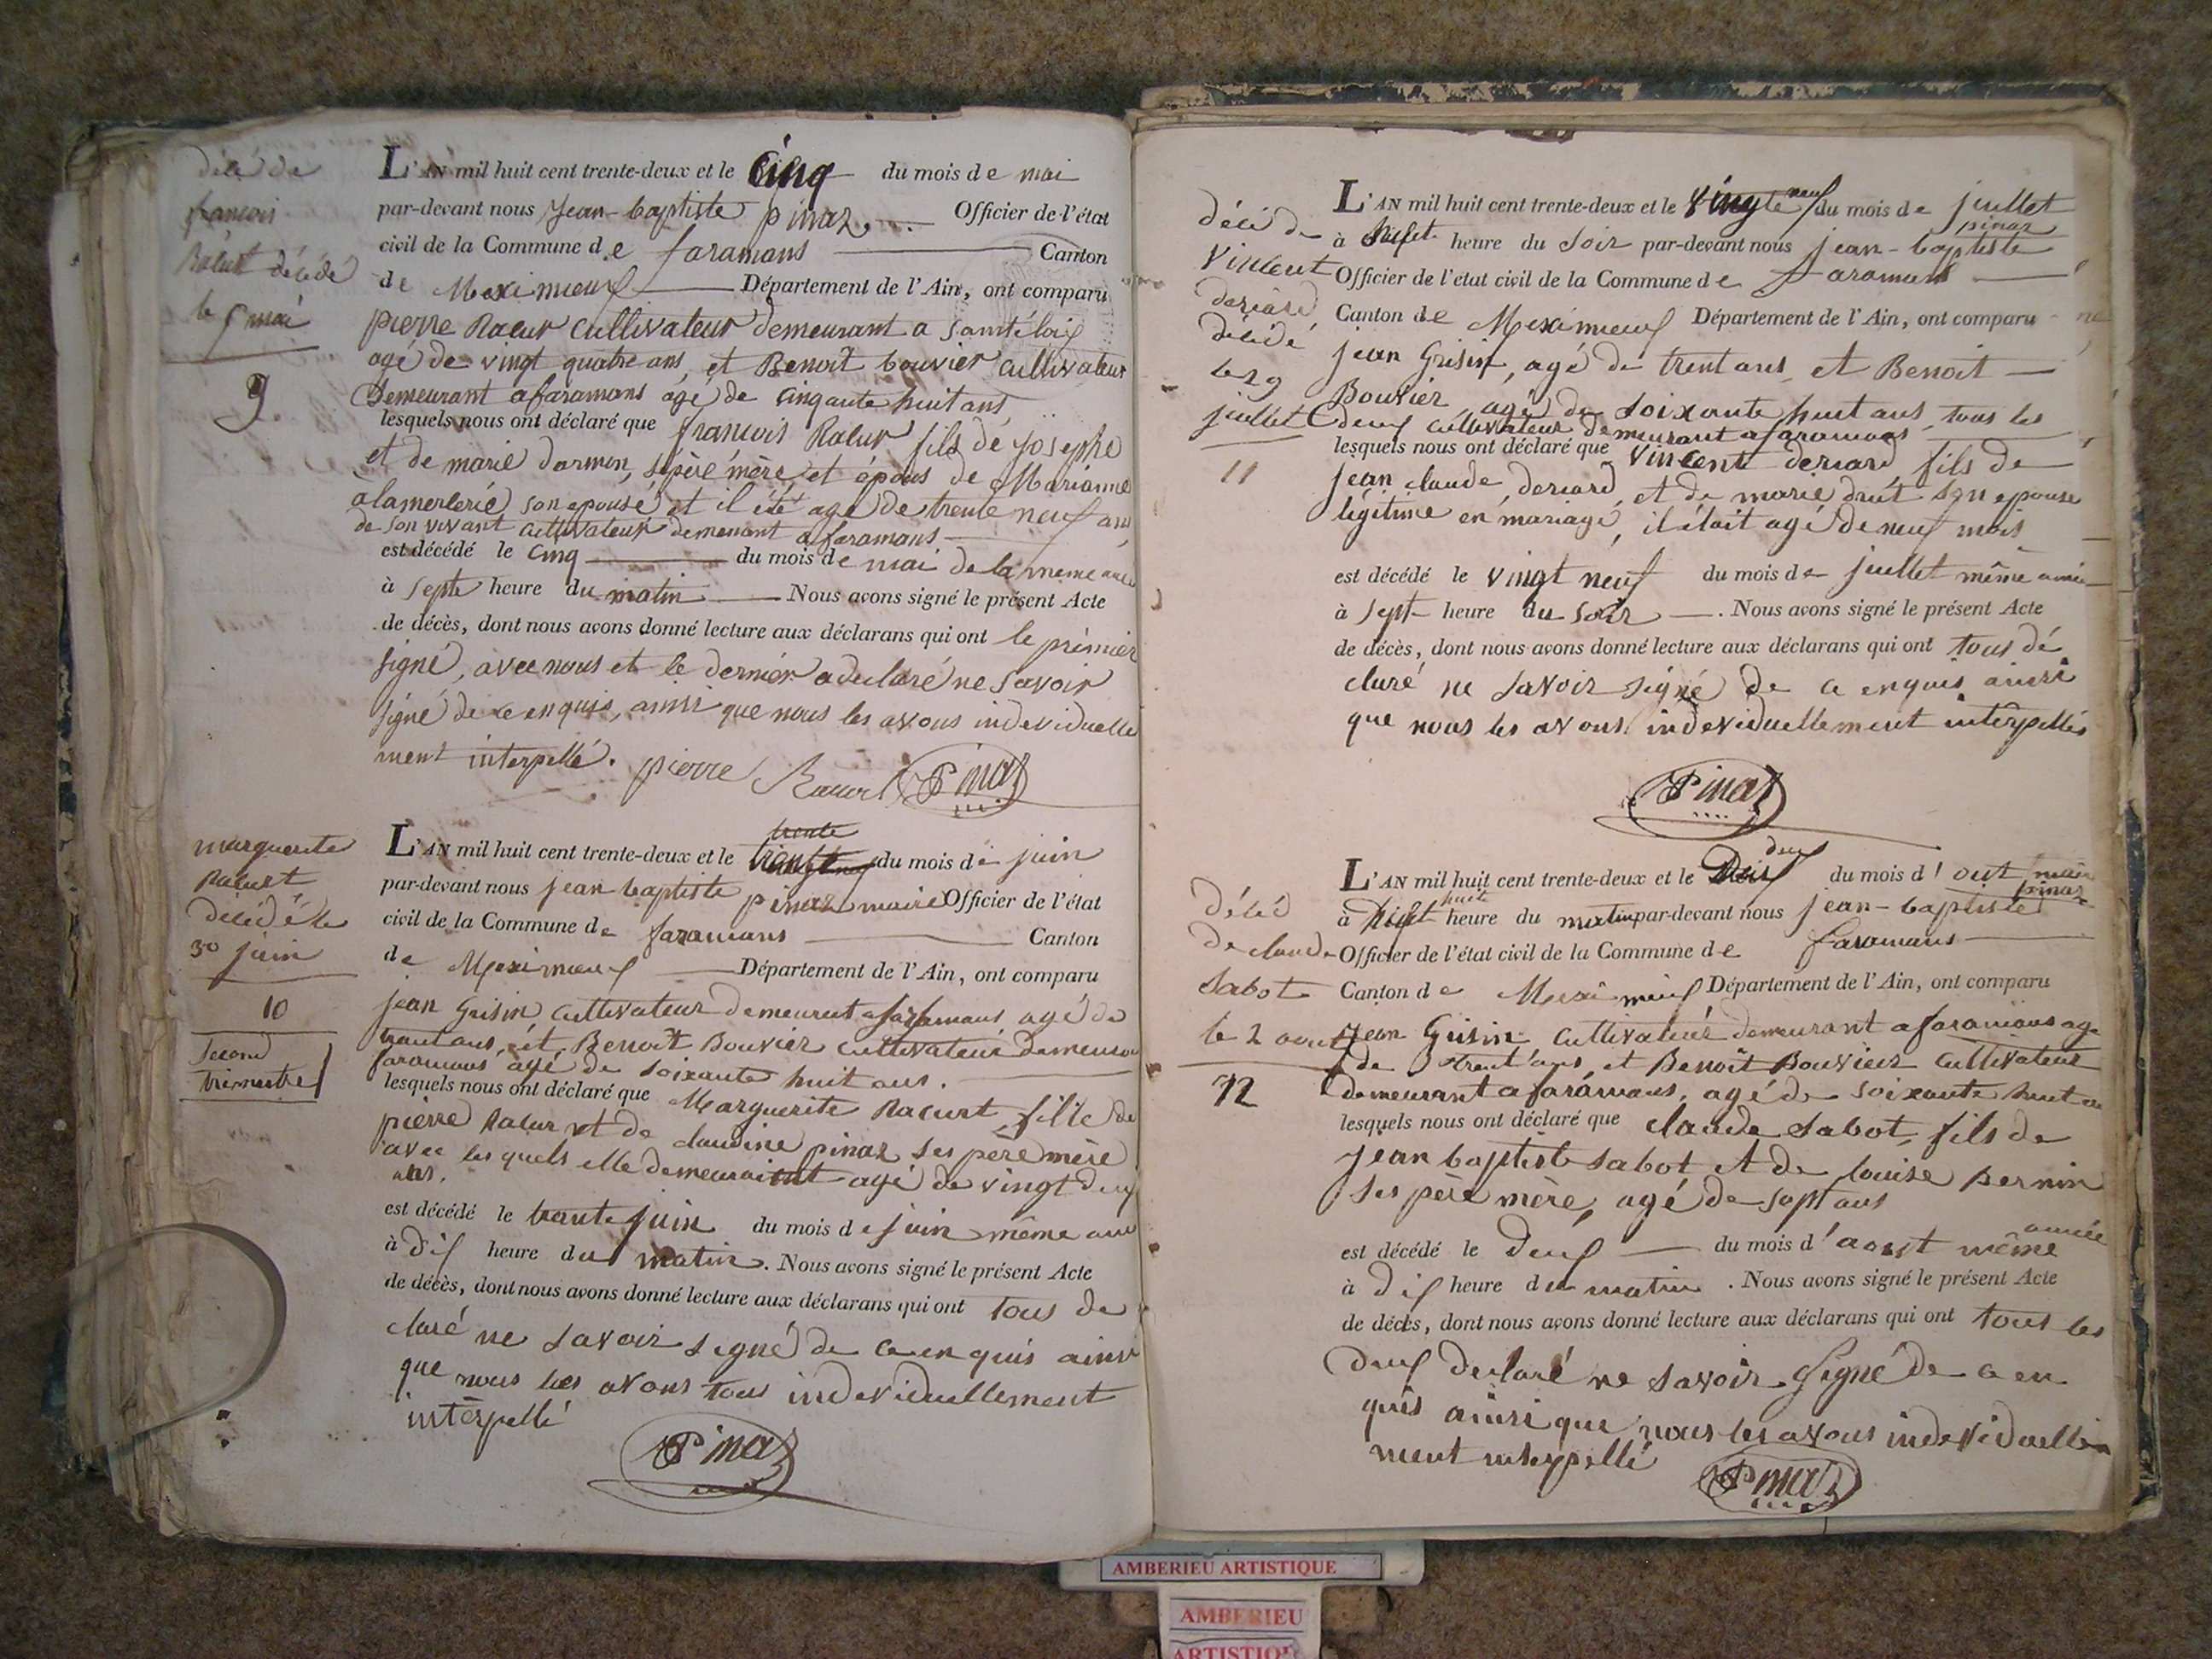 décé de
françois
Racurt décédé
le 5 mai
9
L'AN mil huit cent trente-deux et le cinq du mois de mai
par-devant nous Jean-baptiste pinaz Officier de l'état
civil de la Commune de faramans Canton
de Meximieux Département de l'Ain, ont comparu
pierre Racur cultivateur demeurant a
agé de vingt quatre ans, et Benoît bouvier cultivateur
demeurant afaramans agé de cinqante huit ans
lesquels nous ont déclaré que francois Racur fils de josephe
et de marie dormon, père mère et épous de Marianne
son epouse et il été agé de trente neuf ans
de son vivant cultivateur demenant afaramans
est décédé le cinq du mois de mai de la meme année
à septe heure du matin Nous avons signé le présent Acte
de décès, dont nous avons donné lecture aux déclarans qui ont le prémier
signé, avec nous et le dernier adeclaré ne savoir
signé de ce enquis, ainsi que nous les avons indeviduelle
ment interpellé. pierre Racurt Pinaz
marguerite
Racurt
décédé le
30 juin
10
Second
trimestre
L'AN mil huit cent trente-deux et le trente du mois de juin
par-devant nous jean baptiste pinaz maire Officier de l'état
civil de la Commune de faramans Canton
de Meximieux Département de l'Ain, ont comparu
jean Grisin cultivateur demeurent afaramans agé de
trantans, et Benoît Bouvier cultivateur demeurant
faramans agé de soixante huit ans.
lesquels nous ont déclaré que Marguerite Racurt fille de
pierre Racur et de claudine pinaz ses père mère
avec les quels elle demeuraient agé de vingt deux
ans.
est décédé le trante juin du mois de juin même année
à dix heure du matin. Nous avons signé le présent Acte
de décès, dont nous avons donné lecture aux déclarans qui ont tous de
claré ne savoir signé de ce enquis ainsi
que nous les avons tous indeviduellement
interpellé
Pinaz
décé de
Vincent
deriard
décédé
le 29
juillet
11
L'AN mil huit cent trente-deux et le vingte neuf du mois de juillet
à heure du soir par-devant nous jean-baptiste pinaz
Officier de l'état civil de la Commune de faramans
Canton de Meximieux Département de l'Ain, ont comparu
jean Grisin, agé de trent ans et Benoit
Bouvier agé de soixante huit ans tous les
deux cultivateur demeurant afaramans
lesquels nous ont déclaré que Vincent deriard fils de
jean claude deriard et de marie druét son epouse
légitime en mariagé, il était agé de neuf mois
est décédé le vingt neuf du mois de juillet même année
à sept heure du soir. Nous avons signé le présent Acte
de décès, dont nous avons donné lecture aux déclarans qui ont tous dé
claré ne savoir signé de ce enquis ainsi
que nous les avons indeviduellement interpellés
Pinaz
décéd
de claude
Sabot
le 2 aout
12
L'AN mil huit cent trente-deux et le deux du mois d'out
à huit heure du matin par-devant nous jean-baptiste pinaz
Officier de l'état civil de la Commune de faramans
Canton de Meximieux Département de l'Ain, ont comparu
jean Grisin cultivateur demeurant afaramans age
de trent'ans et Benoît Bouvier cultivateur
demeurant afaramans, agé de soixante huit an
lesquels nous ont déclaré que claude Sabot, fils de
jean baptiste sabot et de louise Bernin
ses père mère, agé de sept ans
est décédé le deux du mois d'aout même année
à dix heure du matin. Nous avons signé le présent Acte
de décès, dont nous avons donné lecture aux déclarans qui ont tous les
deux declaré ne savoir signé de ce en
quis ainsi que nous les avons indeviduelle
ment interpellé
Pinaz
AMBERIEU ARTISTIQUE
AMBERIEU
ARTISTIQUE